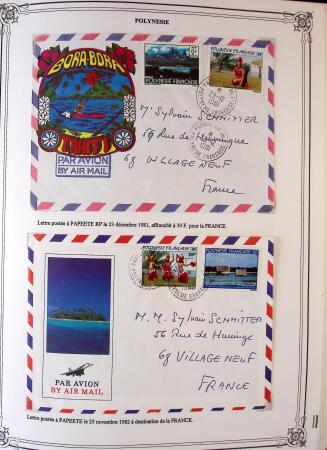 POLYNESIE
BORA-BORA
TAHITI
PAR AVION
BY AIR MAIL
POLYNESIE FRANÇAISE
POLYNESIE FRANÇAISE
M. Sylvain SCHMITTER
Rue de
68 VILLAGE NEUF
France
Lettre postée à PAPEETE RP le 23 décembre 1981, affranchit à 30 F. pour la FRANCE.
POLYNESIE FRANÇAISE
POLYNESIE FRANÇAISE
M. M. Sylvain SCHMITTER
56 Rue de Huningue
68 VILLAGE NEUF
FRANCE
PAR AVION
BY AIR MAIL
Lettre postée à PAPEETE le 25 novembre 1982 à destination de la FRANCE.